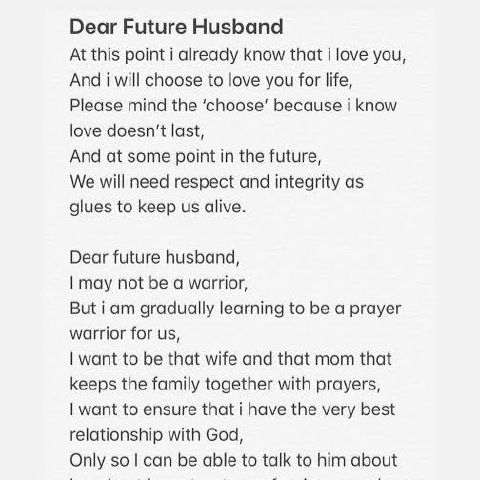 Dear Future Husband
At this point i already know that i love you,
And i will choose to love you for life,
Please mind the ‘choose’ because i know
love doesn’t last,
And at some point in the future,
We will need respect and integrity as
glues to keep us alive.
Dear future husband,
I may not be a warrior,
But i am gradually learning to be a prayer
warrior for us,
I want to be that wife and that mom that
keeps the family together with prayers,
I want to ensure that i have the very best
relationship with God,
Only so I can be able to talk to him about